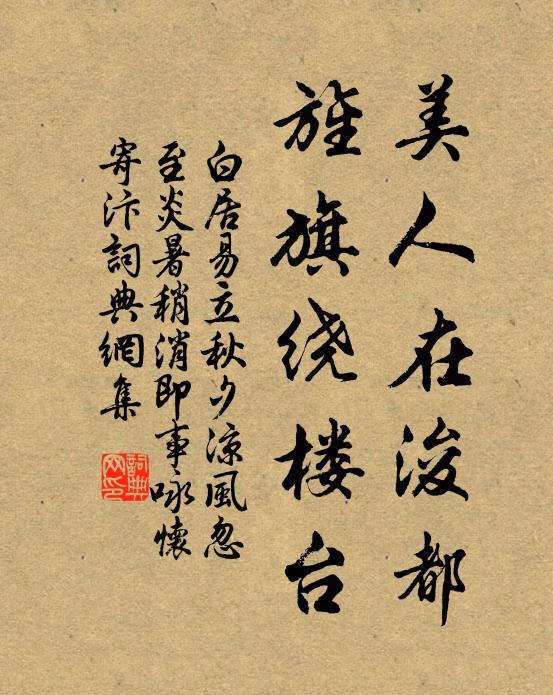 美人在浚都
旌旗绕楼台
白居易立秋夕凉風忽
至炎暑稍消即事咏懷
寄汴詞典網集
詞典
网印